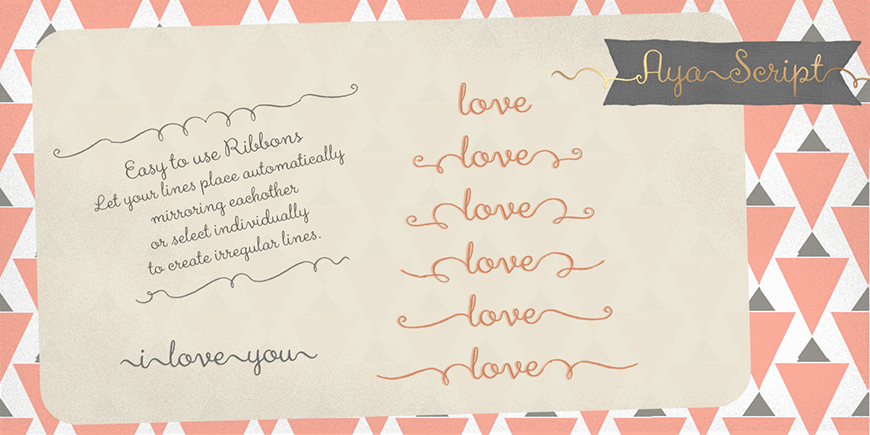 Aya Script
Easy to use Ribbons
Let your lines place automatically
mirroring eachother
or select individually
to create irregular lines.
i love you
love
love
love
love
love
love